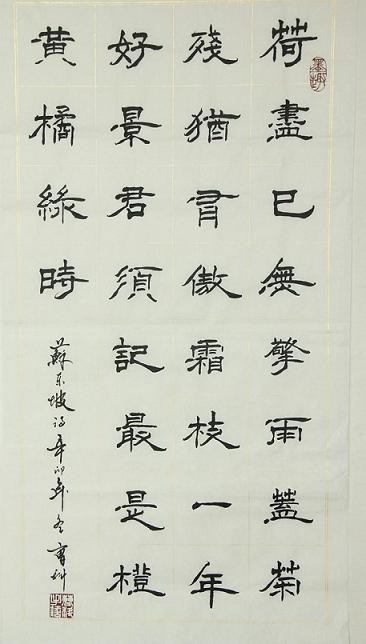 荷盡已無擎雨蓋菊
殘猶有傲霜枝一年
好景君須記最是橙
黃橘綠時
蘇東坡詩辛卯年冬